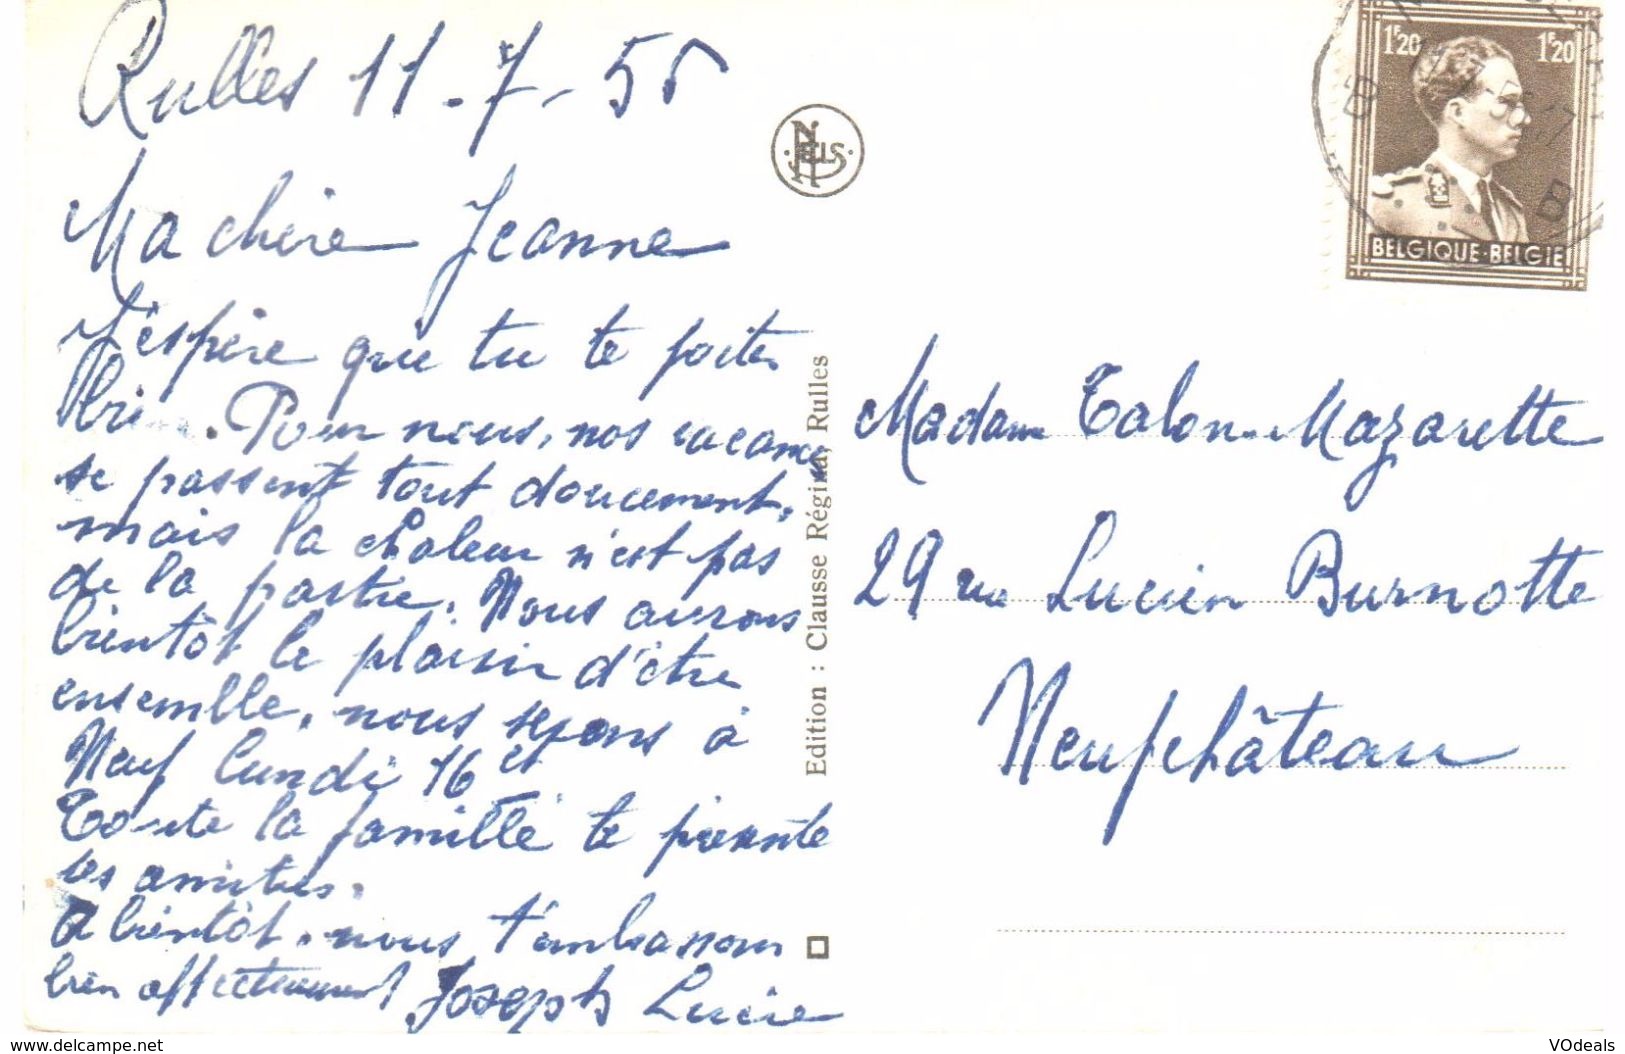 Rulles 11-7-55
Ma chère Jeanne
J'espère que tu te portes
bien. Pour nous, nos vacances
se passent tout doucement,
mais la chaleur n'est pas
de la partie. Nous aurons
bientôt le plaisir d'être
ensemble, nous serons à
Neuf lundi 16 et
Toute la famille te présente
ses amitiés.
A bientôt, nous t'embrassons
bien affectueusement Joseph Lucie
NELS
Edition : Clausse Régina, Rulles
1F20 1F20
BELGIQUE·BELGIE
B B
Madame Talon-Mazarette
29 rue Lucien Burnotte
Neufchâteau
www.delcampe.net
VOdeals